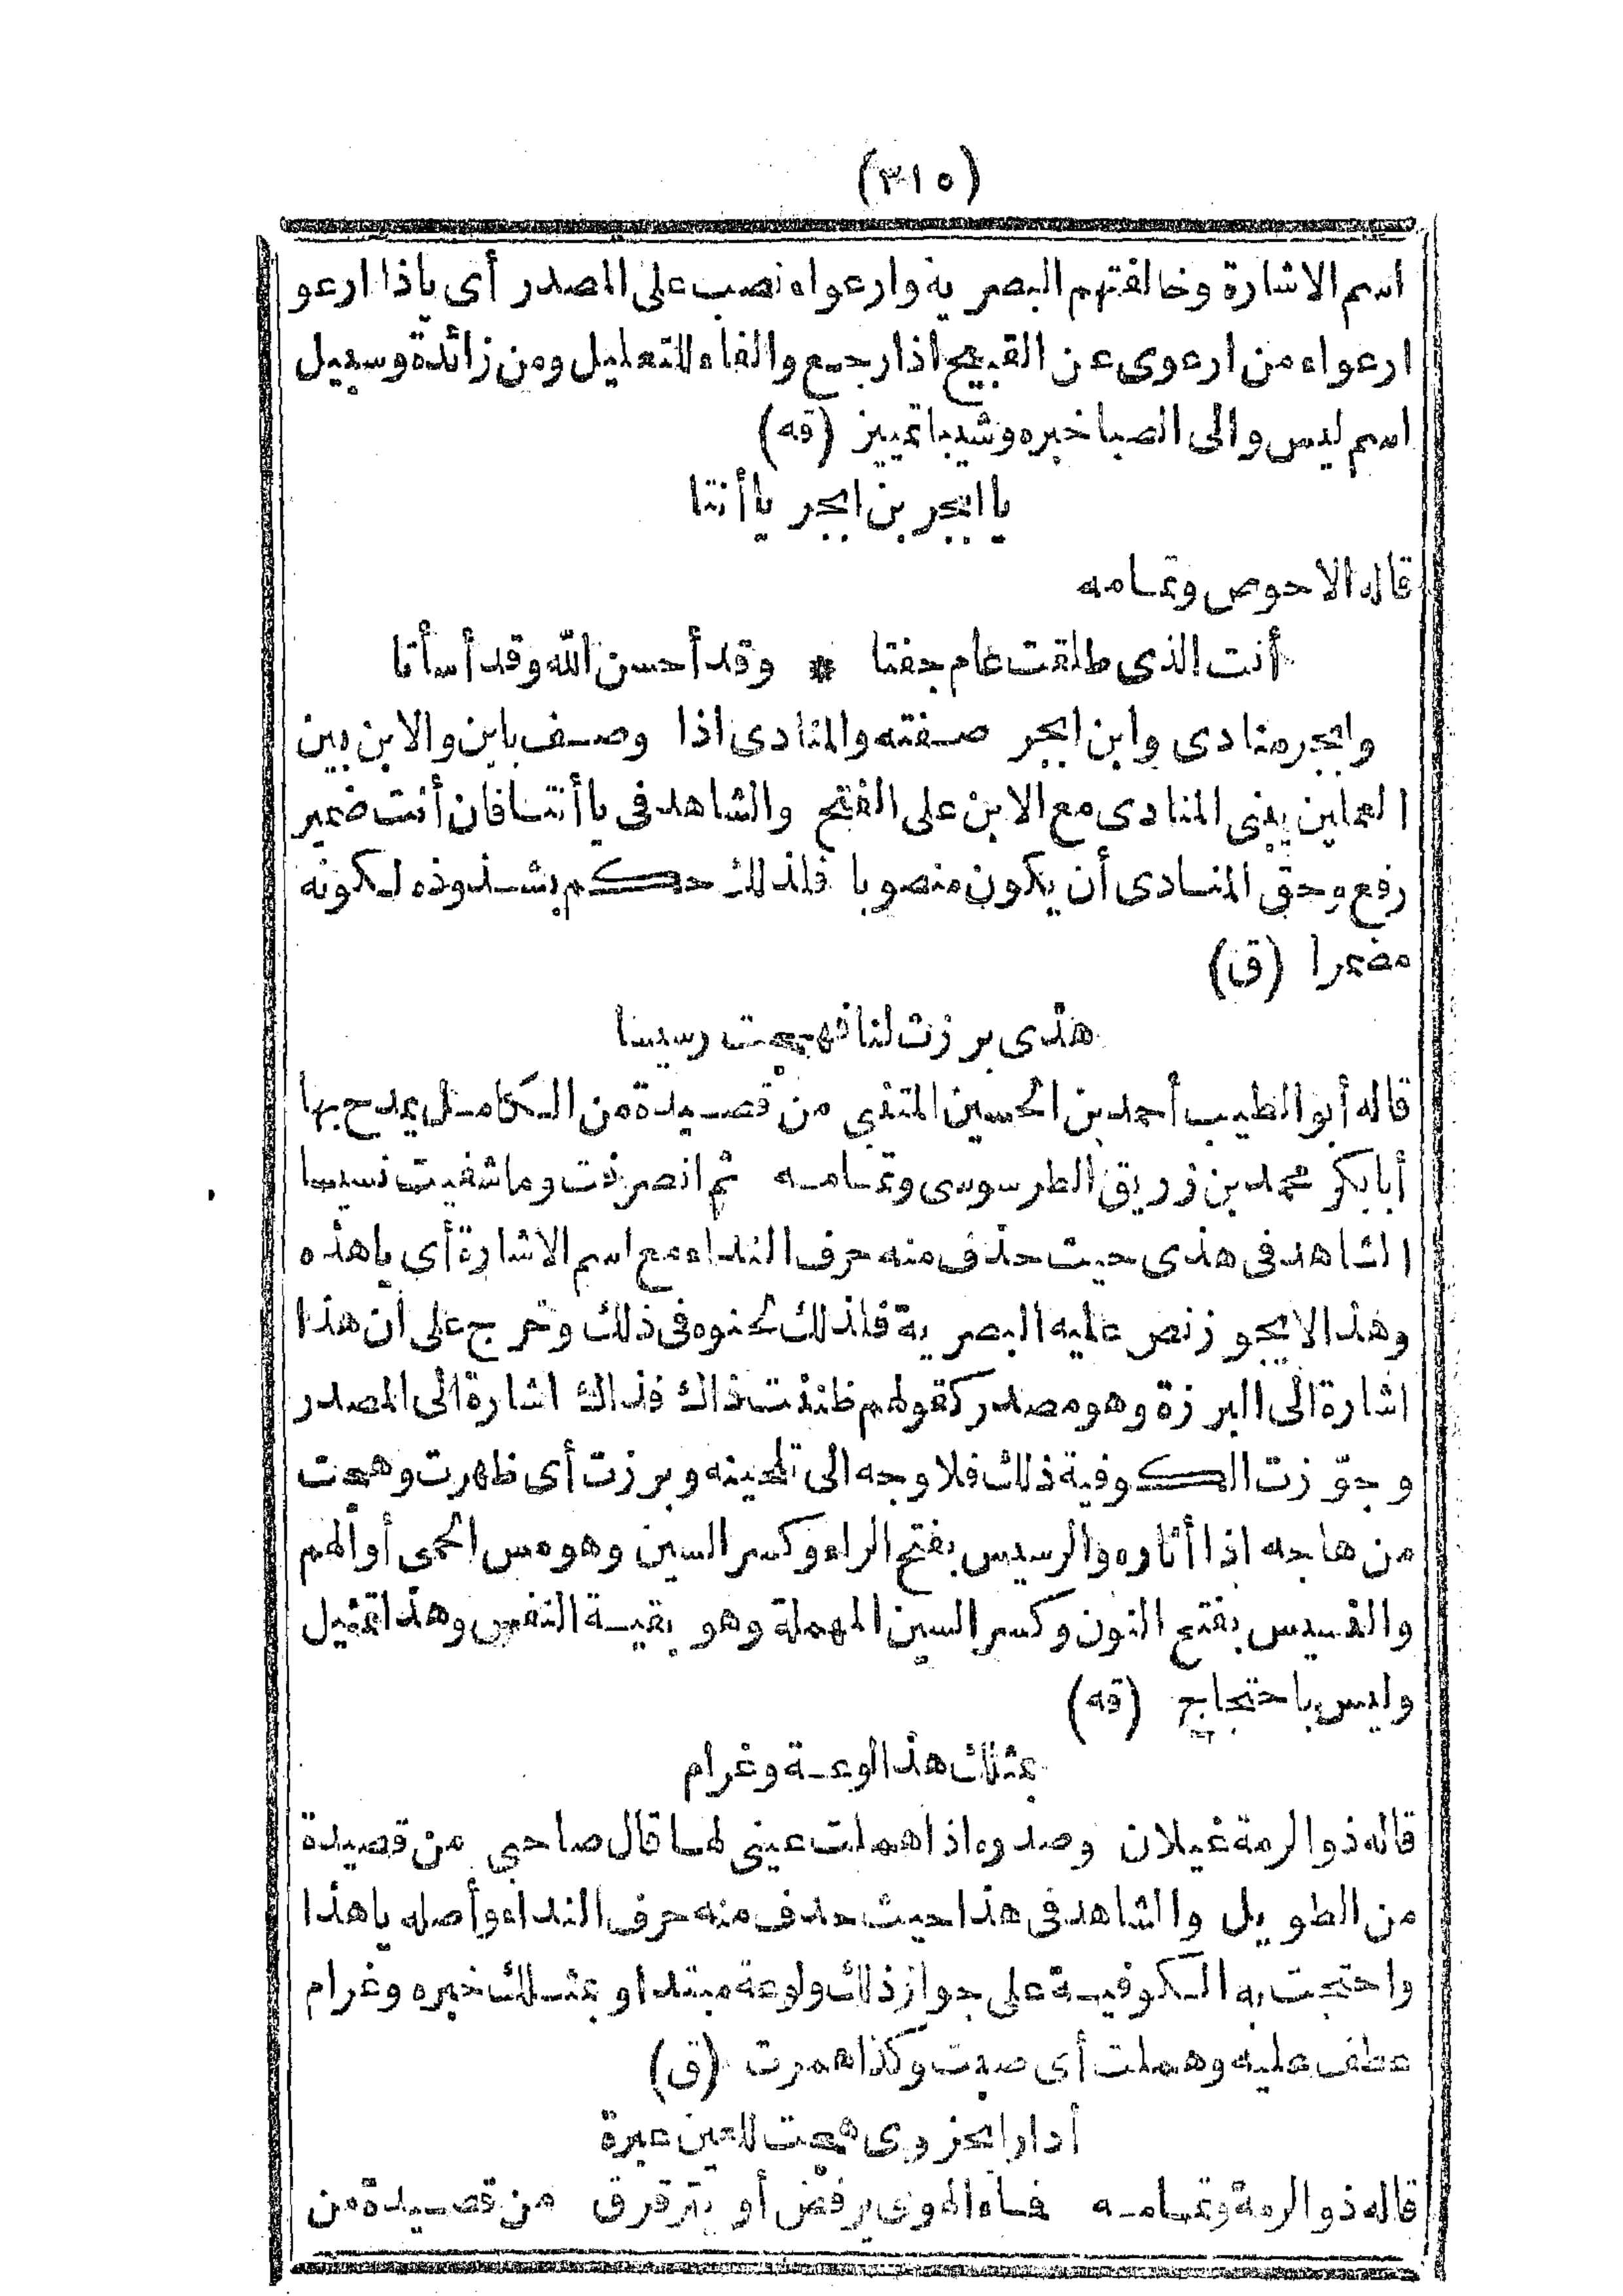 (٣١٥)
اسم الاشارة وخالفتهم البصرية وارعواء نصب على المصدر أى ياذا ارعو
ارعواء من ارعوى عن القبيح اذا رجع والفاء للتعليل ومن زائدة وسبيل
اسم ليس والى الصبا خبره وشيبا تمييز (قه)
يا ابجر بن ابجر يا أنتا
قاله الاحوص وتمامه
أنت الذى طلقت عام جعتا * وقد أحسن الله وقد أسأتا
وابجر منادى وابن ابجر صفته والمنادى اذا وصف بابن والابن بين
العلمين يبنى المنادى مع الابن على الفتح والشاهد فى يا أنتا فان أنت ضمير
رفع وحق المنادى أن يكون منصوبا فلذلك حكم بشذوذه لكونه
مضمرا (ق)
هذى برزت لنا فهجت رسيسا
قاله أبو الطيب أحمد بن الحسين المتنبى من قصيدة من الكامل يمدح بها
أبا بكر محمد بن زريق الطرسوسى وتمامه ثم انصرفت وما شفيت نسيسا
الشاهد فى هذى حيث حذف منه حرف النداء مع اسم الاشارة أى يا هذه
وهذا لا يجوز نص عليه البصرية فلذلك لحنوه فى ذلك وخرج على ان هذا
اشارة الى البرزة وهو مصدر كقولهم ظننت ذاك فذاك اشارة الى المصدر
وجوّزت الكوفية ذلك فلا وجه الى تلحينه وبرزت أى ظهرت وهجت
من هاجه اذا أثاره والرسيس بفتح الراء وكسر السين وهو مس الحمى أو الهم
والنسيس بفتح النون وكسر السين المهملة وهو بقية النفس وهذا تمثيل
وليس باحتجاج (قه)
بمثلك هذا لوعة وغرام
قاله ذو الرمة غيلان وصدره اذا هملت عينى لها قال صاحبى من قصيدة
من الطويل والشاهد فى هذا حيث حذف منه حرف النداء وأصله يا هذا
واحتجت به الكوفية على جواز ذلك ولوعة مبتدا وبمثلك خبره وغرام
عطف عليه وهملت أى صبت وكذا همرت (ق)
أدارا بحزوى هجت للعين عبرة
قاله ذو الرمة وتمامه فماء الهوى يرفض أو يترقرق من قصيدة من